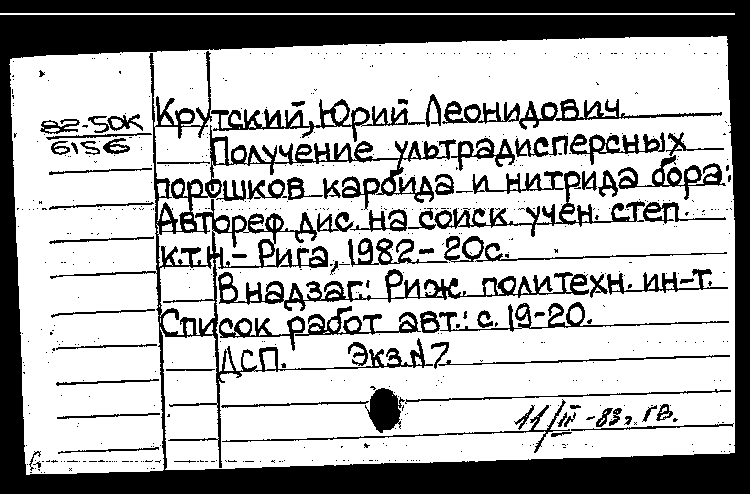 82-50К
6156
Крутский, Юрий Леонидович.
Получение ультрадисперсных
порошков карбида и нитрида бора:
Автореф. дис. на соиск. учен. степ.
к.т.н.- Рига, 1982 - 20с.
В надзаг.: Риж. политехн. ин-т.
Список работ авт.: с. 19-20.
ДСП. Экз.N7.
11/III -83г. ГВ.